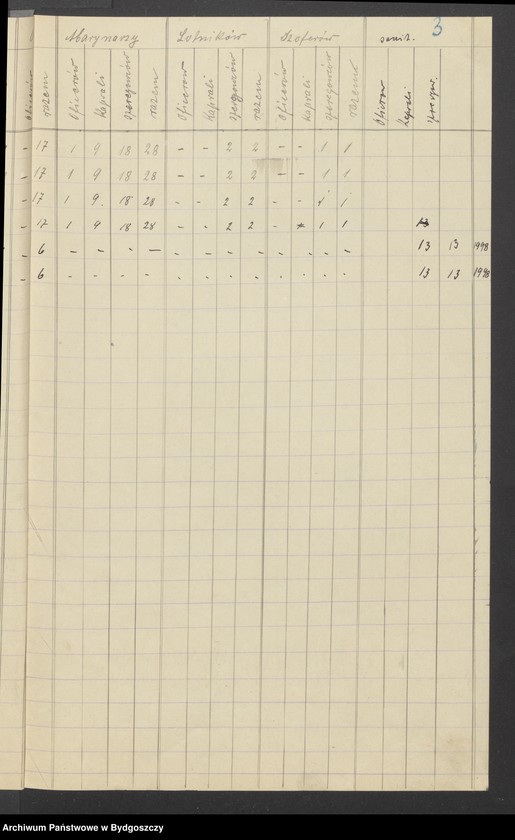 3
Marynarzy Lotników Szoferów sanit.
oficerów razem oficerów kaprali szeregowców razem oficerów kaprali szeregowców razem oficerów kaprali szeregowców razem oficerów kaprali szeregow.
- 17 1 9 18 28 - - 2 2 - - 1 1
- 17 1 9 18 28 - - 2 2 - - 1 1
- 17 1 9. 18 28 - - 2 2 - - 1 1
- 17 1 9 18 28 - - 2 2 - 1 1 13
- 6 - - - - - - - - - - - - 13 13 1998
- 6 - - - - - - - - - - - - 13 13 1998
Archiwum Państwowe w Bydgoszczy